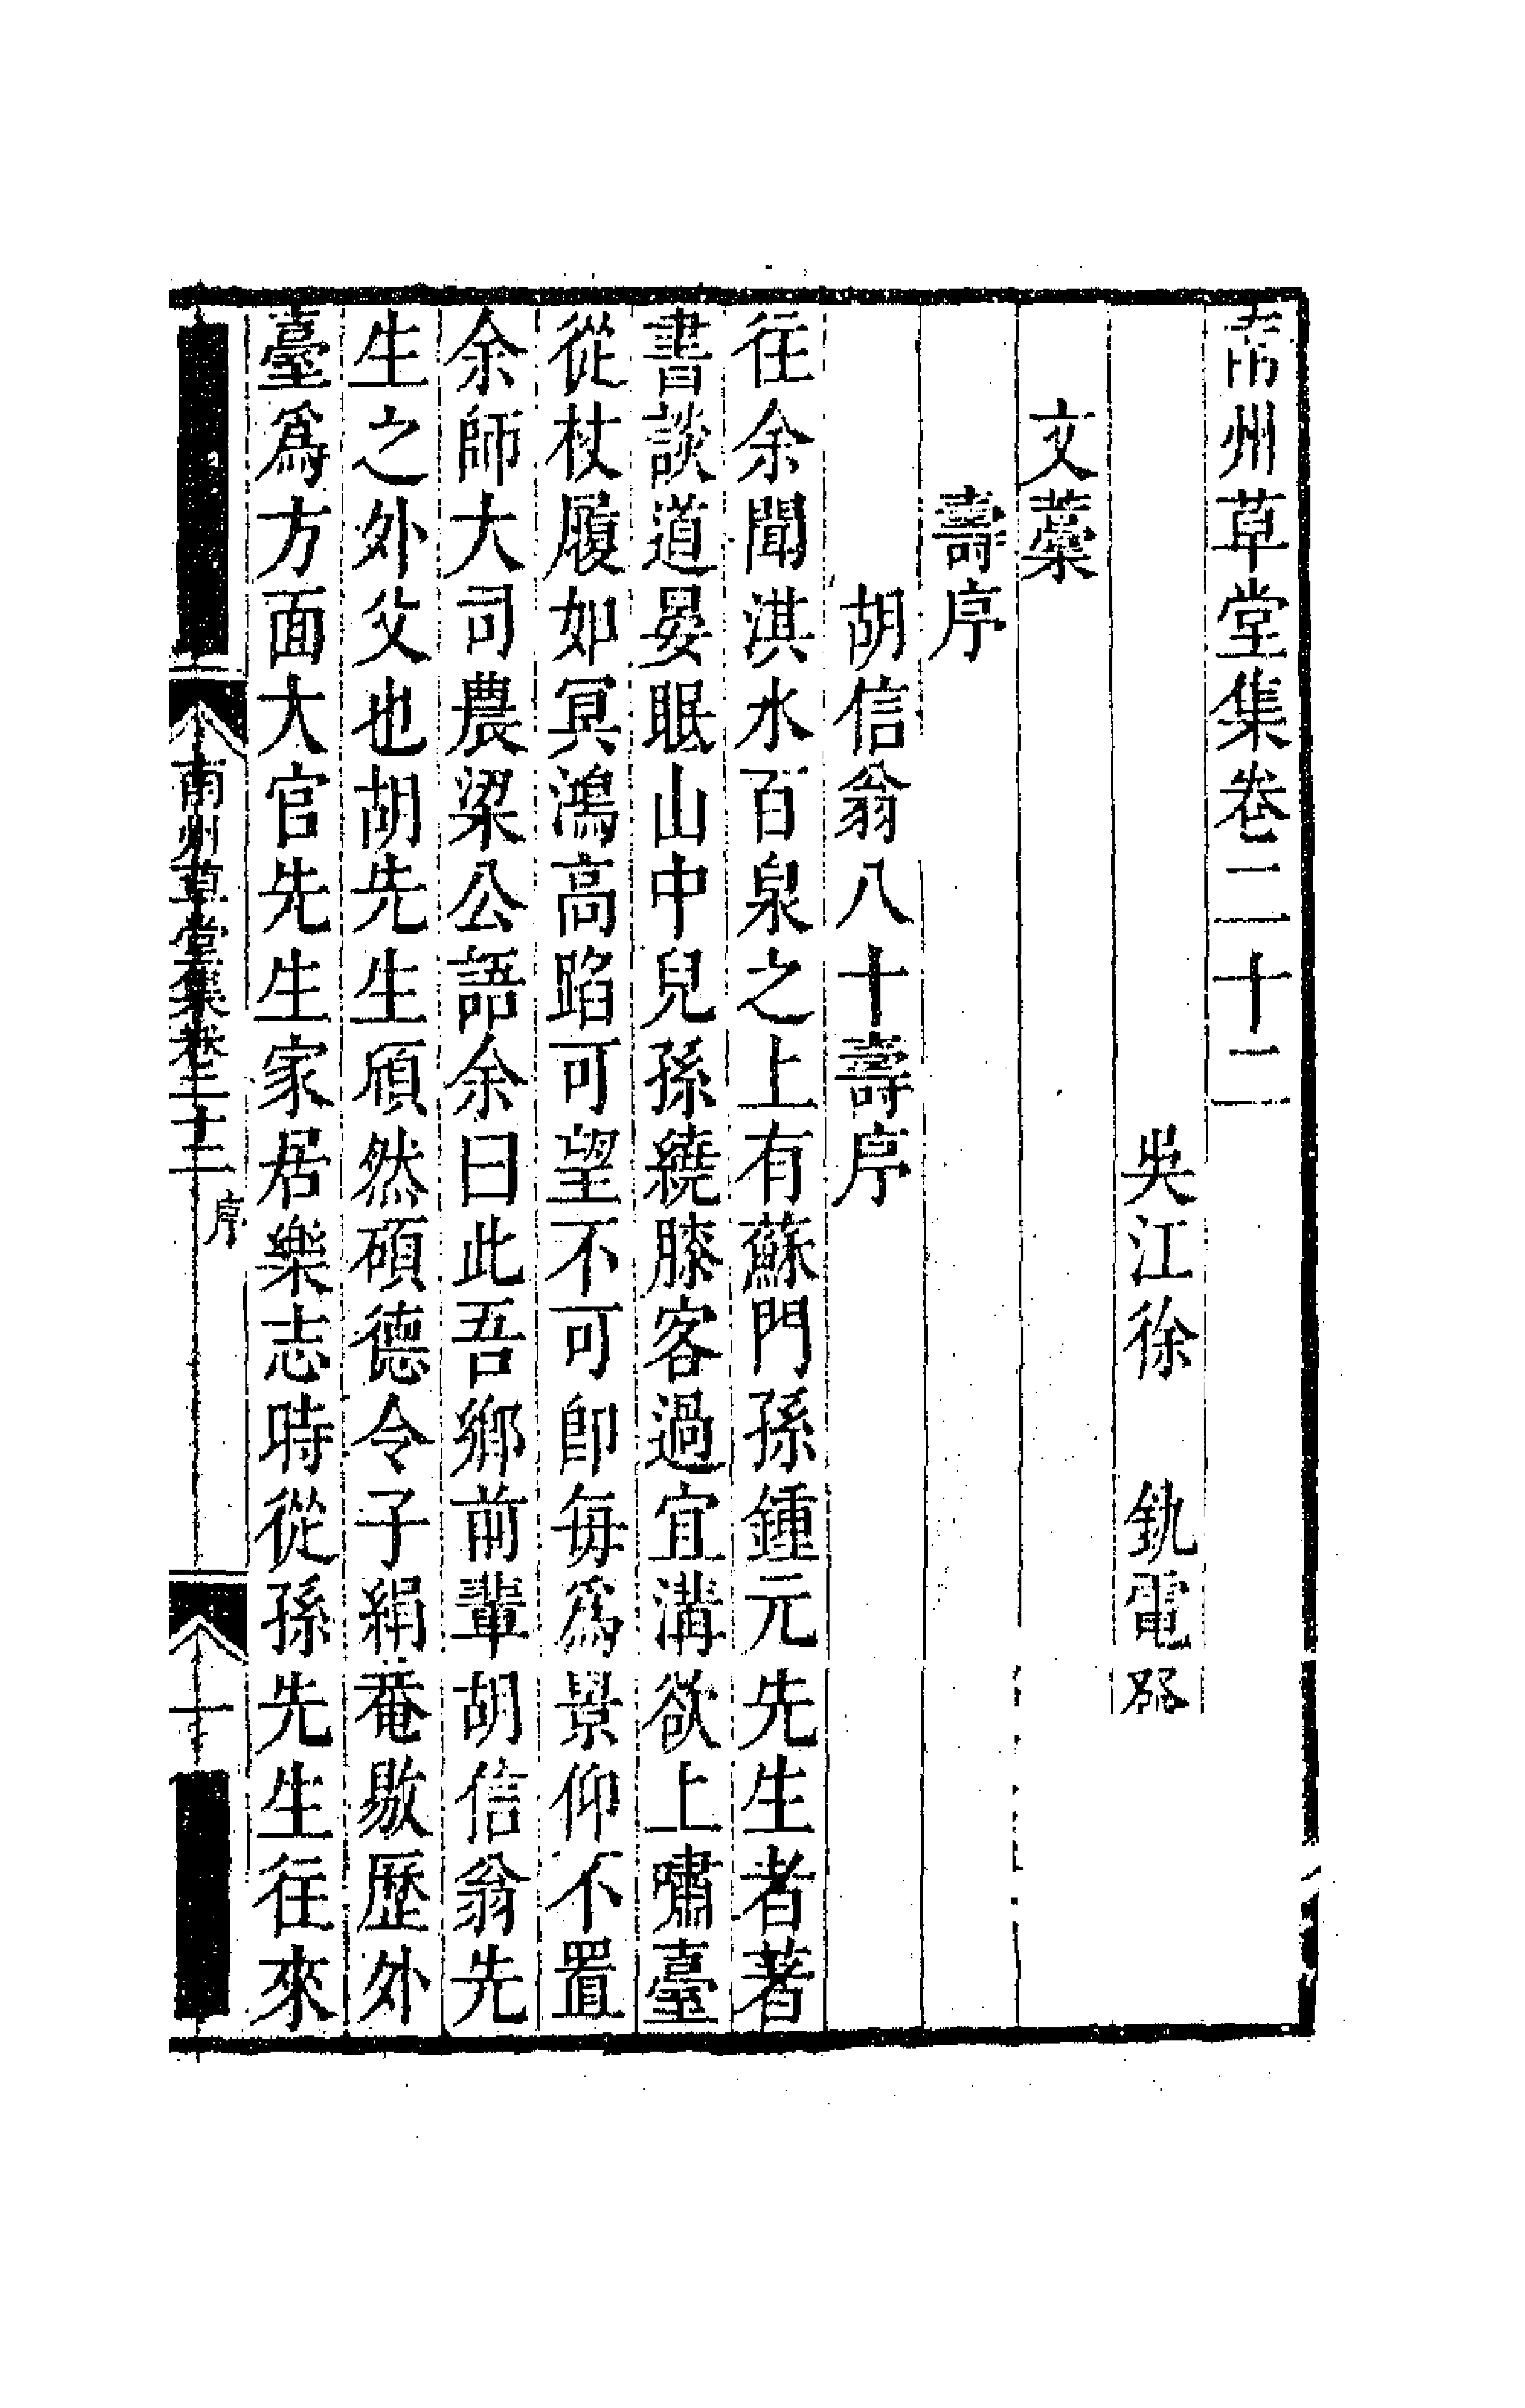 南州草堂集卷二十二
吳江徐 釚電發
文藳
壽序
胡信翁八十壽序
往余聞淇水百泉之上有蘇門孫鍾元先生者著
書談道晏眠山中兒孫繞膝客過宜溝欲上嘯臺
從杖履如冥鴻高蹈可望不可卽每爲景仰不置
余師大司農梁公語余曰此吾鄉前輩胡信翁先
生之外父也胡先生頎然碩德令子絹菴敭歷外
臺爲方面大官先生家居樂志時從孫先生往來
南州草堂集卷二十二 序 一